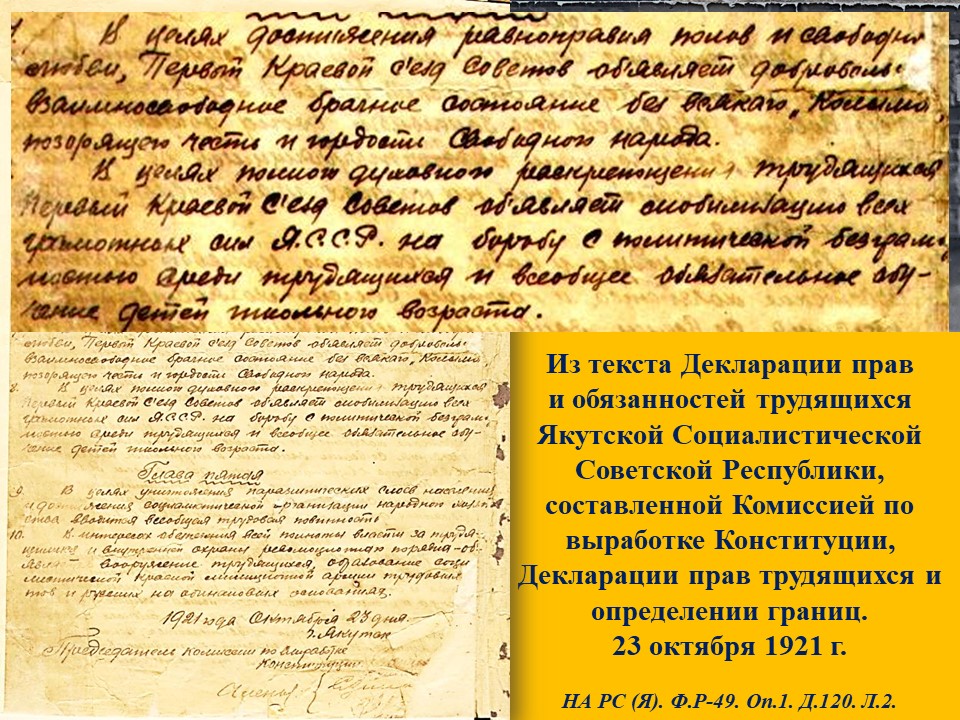 7. В целях достижения равноправия полов и свободной
любви, Первый Краевой с'езд Советов об'являет добровольн.
взаимносвободное брачное состояние без всякаго, Калыма,
позорящего честь и гордости Свободного народа.
В целях полного духовного раскрепощения трудящихся
Первый Краевой С'езд Советов об'являет мобилизацию всех
грамотных сил Я.С.С.Р. на борьбу с политической безграм-
ностью среди трудящихся и всеобщее обязательное обу-
чение детей школьного возраста.
любви, Первый Краевой С'езд Советов об'являет добровольн.
взаимносвободное брачное состояние без всякаго, Калыма
позорящего честь и гордости Свободного народа.
8. В целях полного духовного раскрепощения трудящихся
Первый Краевой С'езд Советов об'являет мобилизацию всех
грамотных сил Я.С.С.Р. на борьбу с политической безграм-
ностью среди трудящихся и всеобщее обязательное обу-
чение детей школьного возраста.
Глава пятая
9. В целях уничтожения паразитических слоев населения
и достижения социалистической организации народного хозяй-
ства вводится всеобщая трудовая повинность
10. В интересах обеспечения всей полноты власти за трудя-
щимися и внутренней охраны революцион порядка об'-
явля вооружение трудящихся, образование соци
листической Краевой милиционной армии
и русских на одинаковых основаниях.
1921 года Октября 23 дня.
г. Якутск
Председатель комиссии по выработке
Конституции
Из текста Декларации прав
и обязанностей трудящихся
Якутской Социалистической
Советской Республики,
составленной Комиссией по
выработке Конституции,
Декларации прав трудящихся и
определении границ.
23 октября 1921 г.
НА РС (Я). Ф.Р-49. Оп.1. Д.120. Л.2.